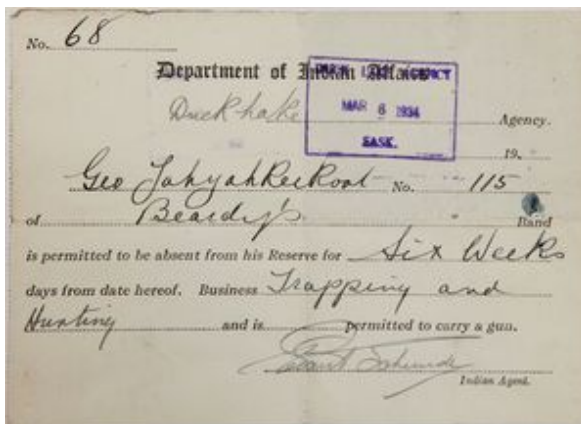 No. 68
Department of Indian Affairs
DUCK LAKE AGENCY
MAR 6 1934
SASK.
Duck Lake Agency.
19
Geo No. 115
of Beardy's Band
is permitted to be absent from his Reserve for Six Weeks
days from date hereof. Business Trapping and
Hunting and is permitted to carry a gun.
Indian Agent.